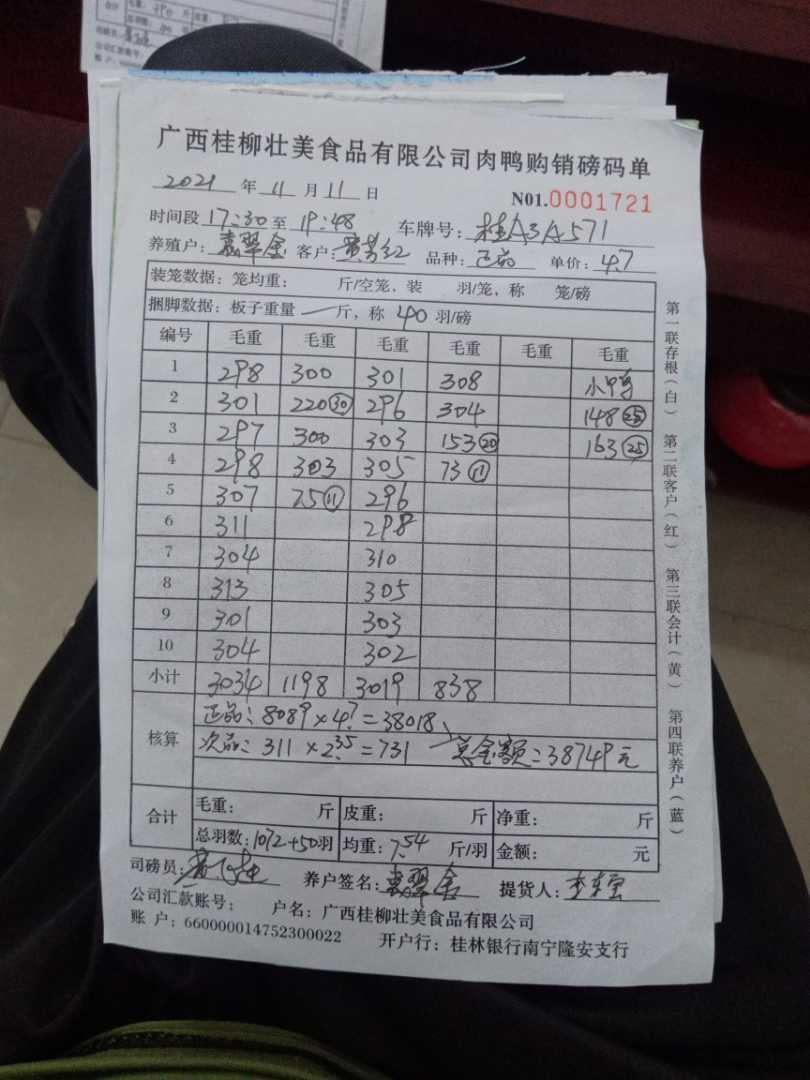 广西桂柳壮美食品有限公司肉鸭购销磅码单
2021 年 11 月 11 日 N01.0001721
时间段 17:30 至 19:48 车牌号: 桂A3A571
养殖户: 客户: 品种: 正品 单价: 4.7
装笼数据: 笼均重: 斤/空笼, 装 羽/笼, 称 笼/磅
捆脚数据: 板子重量 一 斤, 称 40 羽/磅
编号 毛重 毛重 毛重 毛重 毛重 毛重
1 298 300 301 308 小鸭
2 301 220㉚ 296 304 148㉕
3 297 300 303 153⑳ 163㉕
4 298 303 305 73⑪
5 307 75⑪ 296
6 311 298
7 304 310
8 313 305
9 301 303
10 304 302
小计 3034 1198 3019 838
核算 正品: 8089×4.7=38018
次品: 311×2.35=731 总金额=38749元
合计 毛重: 斤 皮重: 斤 净重: 斤
总羽数: 1072+50羽 均重: 7.54 斤/羽 金额: 元
司磅员: 养户签名: 提货人:
公司汇款账号: 户名: 广西桂柳壮美食品有限公司
账 户: 660000014752300022 开户行: 桂林银行南宁隆安支行
第一联存根(白) 第二联客户(红) 第三联会计(黄) 第四联养户(蓝)